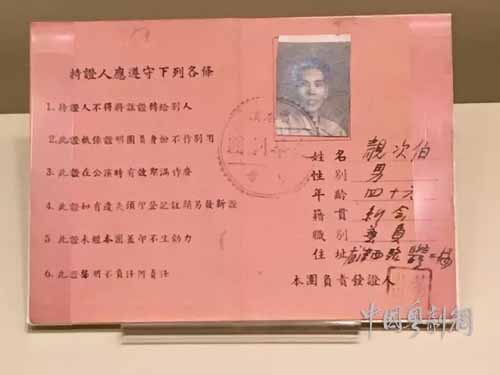 持證人應遵守下列各條
1. 持證人不得將該證轉給别人
2. 此證祇係證明團員身份不作别用
3. 此證在公演時有效期滿作廢
4. 此證如有遺失須聲登記註銷另發新證
5. 此證未經本團蓋印不生効力
6. 此證聲明不負任何責任
姓名 靚次伯
性别 男
年齡 四十六
籍貫 新會
職别 藝員
住址
本團負責發證人
中國粵劇網